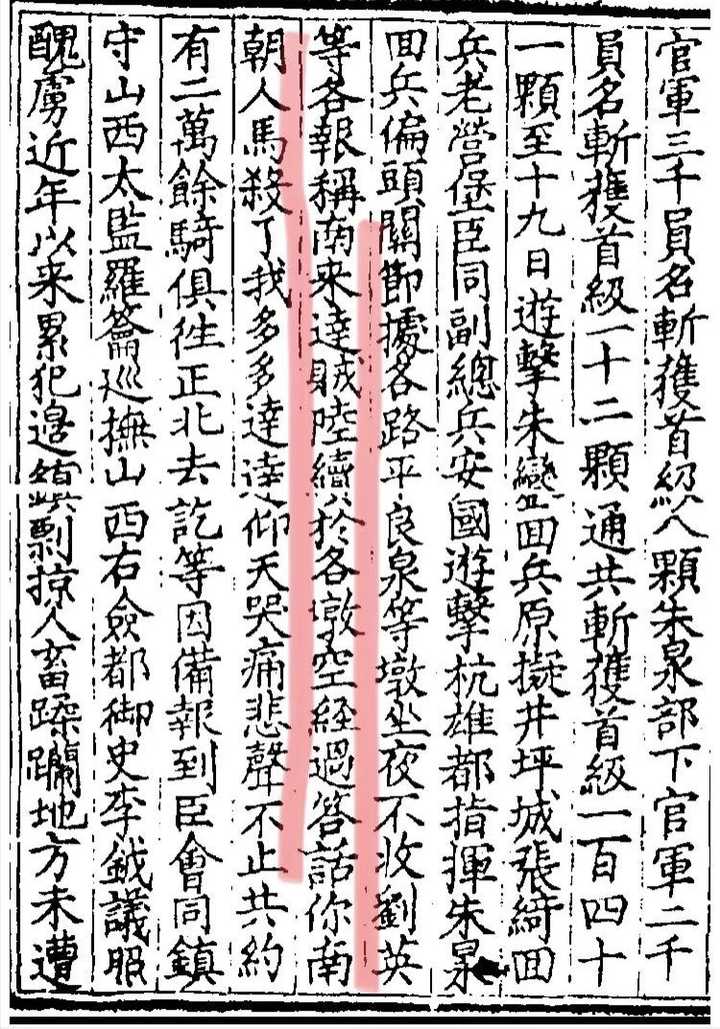 官軍三千員名斬獲首級八顆朱泉部下官軍二千
員名斬獲首級一十二顆通共斬獲首級一百四十
一顆至十九日遊擊朱鑾回兵原擬井坪城張綺回
兵老營堡臣同副總兵安國遊擊杭雄都指揮朱泉
回兵偏頭關節據各路平良泉等墩坐夜不收劉英
等各報稱南来達賊陸續於各墩空経過答話你南
朝人馬殺了我多多達達仰天哭痛悲聲不止共約
有二萬餘騎俱徃正北去訖等因備報到臣會同鎮
守山西太監羅籥巡撫山西右僉都御史李鉞議照
醜虜近年以来累犯邊鎮剽掠人畜蹂躪地方未遭